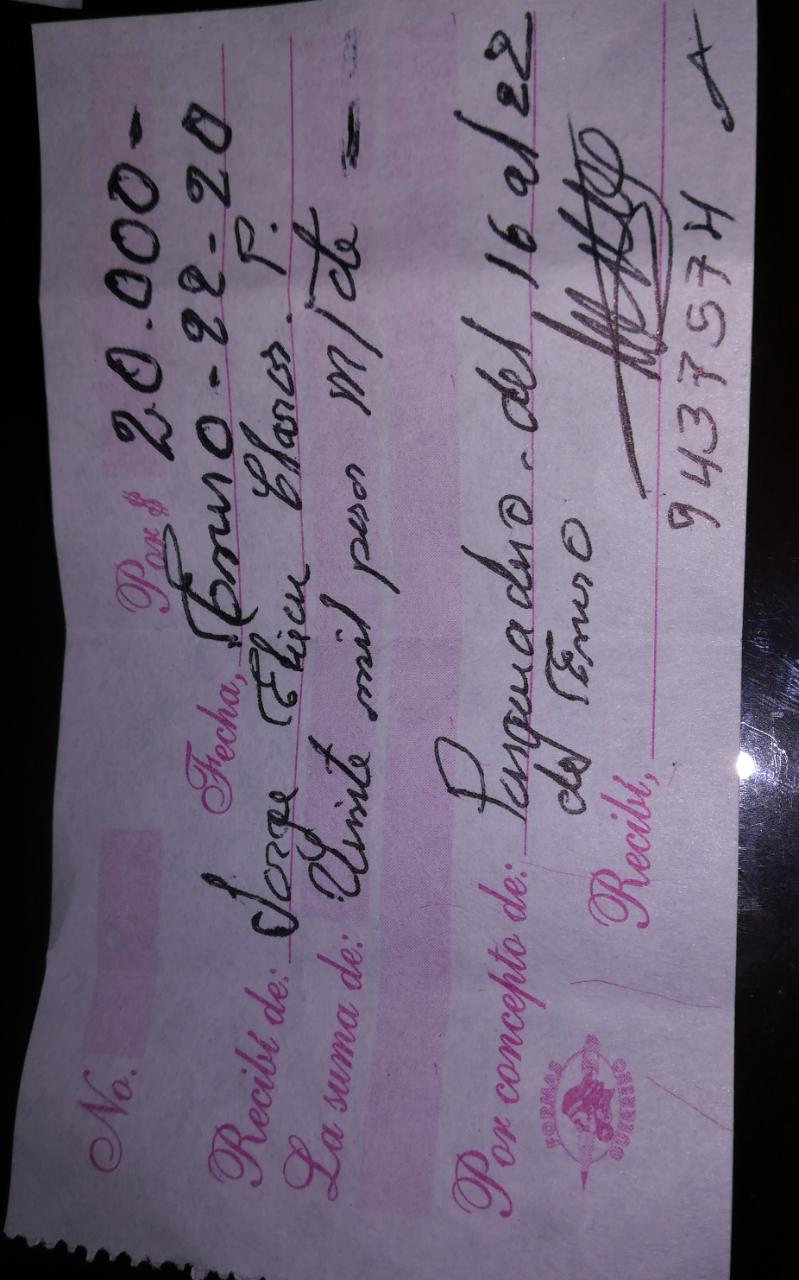 No.
Por $ 20.000-
Fecha, Enero-22-20
Recibí de: Jorge Eliecer Claros. P.
La suma de: Veinte mil pesos m/cte =
Por concepto de: Parqueadero. del 16 al 22
del Enero
Recibí,
9437574
FORMAS
GUERRERO